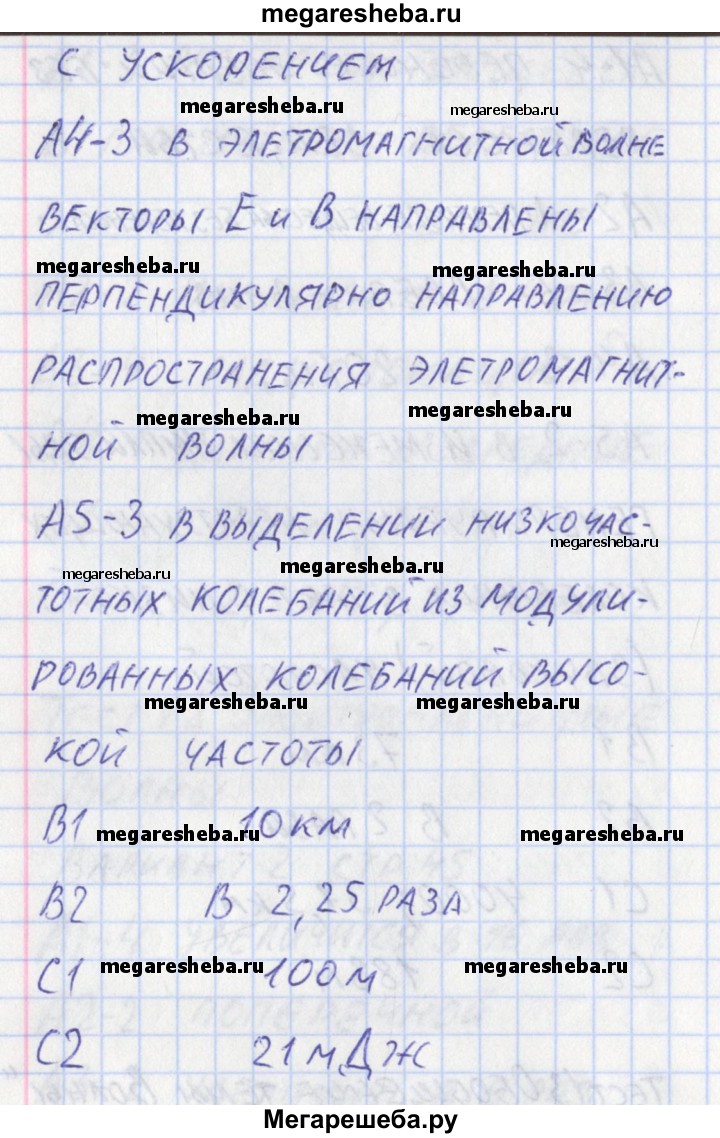 megaresheba.ru
С УСКОРЕНИЕМ
megaresheba.ru megaresheba.ru
А4-3 В ЭЛЕТРОМАГНИТНОЙ ВОЛНЕ
ВЕКТОРЫ Е И В НАПРАВЛЕНЫ
megaresheba.ru megaresheba.ru
ПЕРПЕНДИКУЛЯРНО НАПРАВЛЕНИЮ
РАСПРОСТРАНЕНИЯ ЭЛЕТРОМАГНИТ-
megaresheba.ru megaresheba.ru
НОЙ ВОЛНЫ
А5-3 В ВЫДЕЛЕНИИ НИЗКОЧАС-
megaresheba.ru megaresheba.ru megaresheba.ru
ТОТНЫХ КОЛЕБАНИЙ ИЗ МОДУЛИ-
РОВАННЫХ КОЛЕБАНИЙ ВЫСО-
megaresheba.ru megaresheba.ru
КОЙ ЧАСТОТЫ
В1 10 КМ
megaresheba.ru megaresheba.ru
В2 В 2,25 РАЗА
С1 100 М
megaresheba.ru megaresheba.ru
С2 21 мДЖ
Мегарешеба.ру